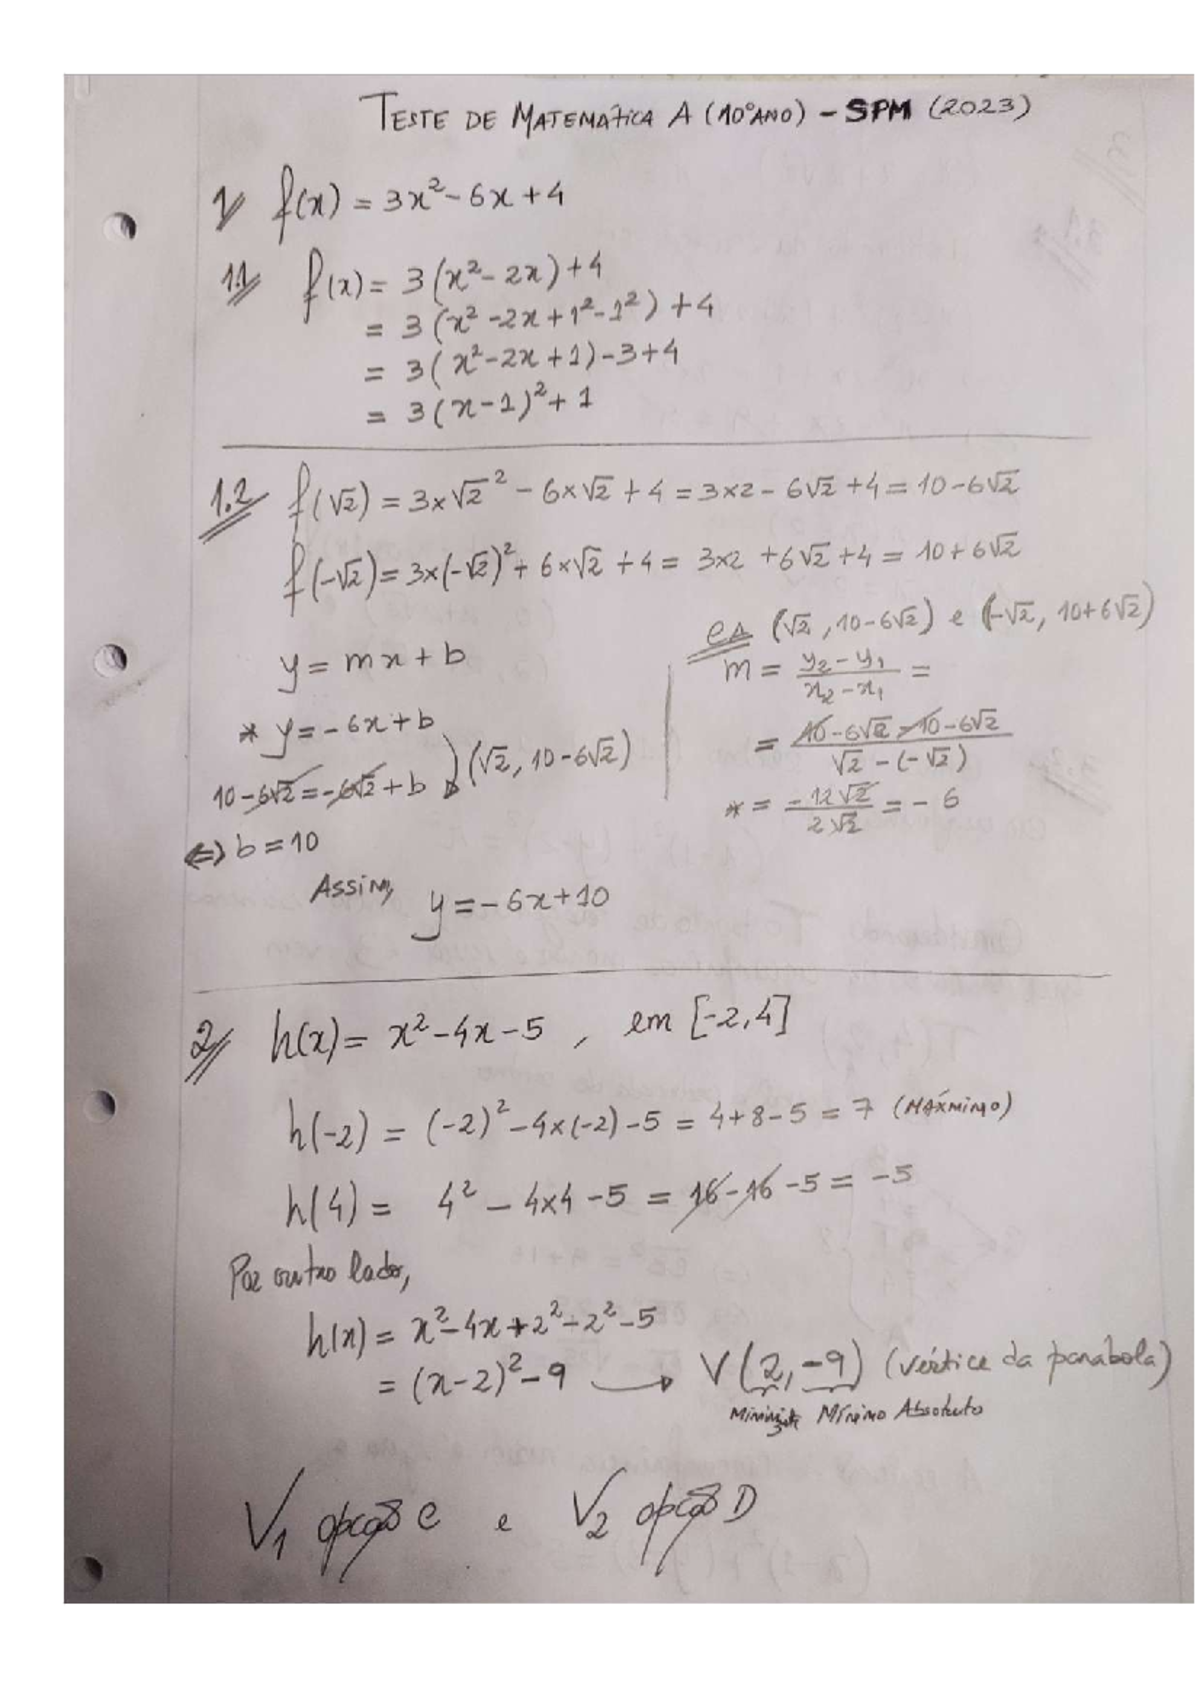 TESTE DE MATEMÁTICA A (10ºANO) - SPM (2023)
1 f(x) = 3x² - 6x + 4
1.1 f(x) = 3(x² - 2x) + 4
= 3(x² - 2x + 1² - 1²) + 4
= 3(x² - 2x + 1) - 3 + 4
= 3(x - 1)² + 1
1.2 f(√2) = 3×√2² - 6×√2 + 4 = 3×2 - 6√2 + 4 = 10 - 6√2
f(-√2) = 3×(-√2)² + 6×√2 + 4 = 3×2 + 6√2 + 4 = 10 + 6√2
(√2, 10 - 6√2) e (-√2, 10 + 6√2)
y = mx + b
m = (y₂ - y₁)/(x₂ - x₁) =
* y = -6x + b
= (10 - 6√2 - 10 - 6√2)/(√2 - (-√2))
10 - 6√2 = -6√2 + b (√2, 10 - 6√2)
* = (-12√2)/(2√2) = -6
⇔ b = 10
Assim, y = -6x + 10
2 h(x) = x² - 4x - 5 , em [-2,4]
h(-2) = (-2)² - 4×(-2) - 5 = 4 + 8 - 5 = 7 (MÁXMIMO)
h(4) = 4² - 4×4 - 5 = 16 - 16 - 5 = -5
Por outro lado,
h(x) = x² - 4x + 2² - 2² - 5
= (x - 2)² - 9 → V(2, -9) (vértice da parábola)
Mínimo Absoluto
V1 opção C e V2 opção D